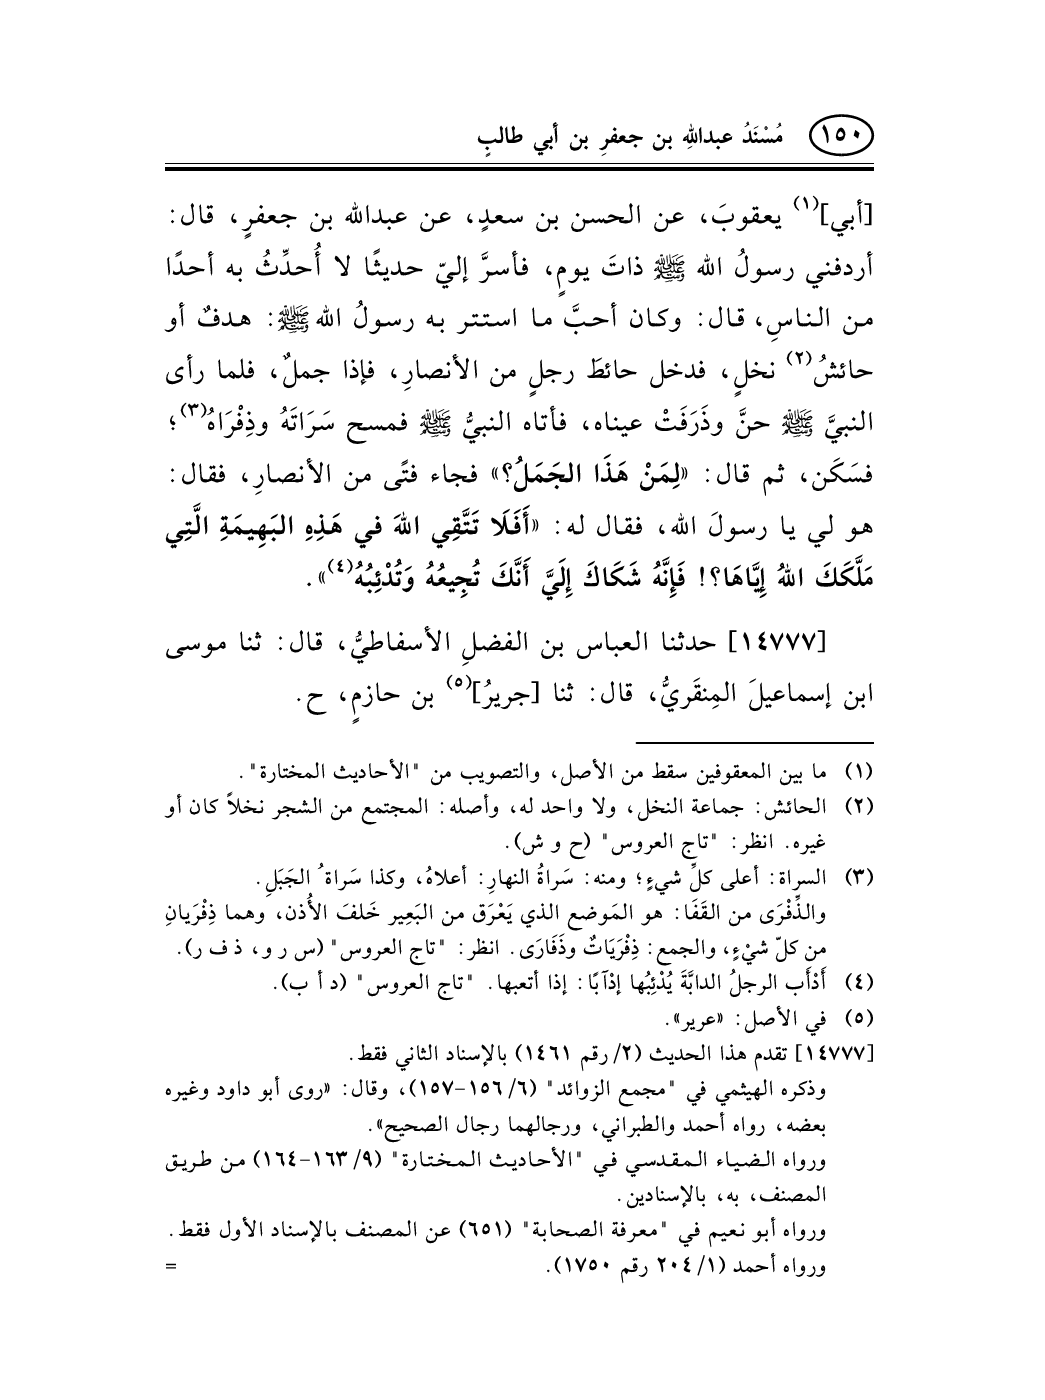 ١٥٠ مُسْنَدُ عبدالله بن جعفرِ بن أبي طالبٍ
[أبي](١) يعقوبَ، عن الحسن بن سعدٍ، عن عبدالله بن جعفرٍ، قال:
أردفني رسولُ الله ﷺ ذاتَ يومٍ، فأسرَّ إليّ حديثًا لا أُحدِّثُ به أحدًا
من الناسِ، قال: وكان أحبَّ ما استتر به رسولُ الله ﷺ: هدفٌ أو
حائشُ(٢) نخلٍ، فدخل حائطَ رجلٍ من الأنصارِ، فإذا جملٌ، فلما رأى
النبيَّ ﷺ حنَّ وذَرَفَتْ عيناه، فأتاه النبيُّ ﷺ فمسح سَرَاتَهُ وذِفْرَاهُ(٣)؛
فسَكَن، ثم قال: «لِمَنْ هَذَا الجَمَلُ؟» فجاء فتًى من الأنصارِ، فقال:
هو لي يا رسولَ الله، فقال له: «أَفَلَا تَتَّقِي اللهَ في هَذِهِ البَهِيمَةِ الَّتِي
مَلَّكَكَ اللهُ إِيَّاهَا؟! فَإِنَّهُ شَكَاكَ إِلَيَّ أَنَّكَ تُجِيعُهُ وَتُدْئِبُهُ(٤)».
[١٤٧٧٧] حدثنا العباس بن الفضلِ الأسفاطيُّ، قال: ثنا موسى
ابن إسماعيلَ المِنقَريُّ، قال: ثنا [جريرُ](٥) بن حازمٍ، ح.
(١) ما بين المعقوفين سقط من الأصل، والتصويب من "الأحاديث المختارة".
(٢) الحائش: جماعة النخل، ولا واحد له، وأصله: المجتمع من الشجر نخلاً كان أو
غيره. انظر: "تاج العروس" (ح و ش).
(٣) السراة: أعلى كلِّ شيءٍ؛ ومنه: سَراةُ النهارِ: أعلاهُ، وكذا سَراةُ الجَبَلِ.
والذِّفْرَى من القَفَا: هو المَوضع الذي يَعْرَق من البَعِير خَلفَ الأُذن، وهما ذِفْرَيانِ
من كلّ شيْءٍ، والجمع: ذِفْرَيَاتٌ وذَفَارَى. انظر: "تاج العروس" (س ر و، ذ ف ر).
(٤) أَدْأَب الرجلُ الدابَّةَ يُدْئِبُها إدْآبًا: إذا أتعبها. "تاج العروس" (د أ ب).
(٥) في الأصل: «عرير».
[١٤٧٧٧] تقدم هذا الحديث (٢/ رقم ١٤٦١) بالإسناد الثاني فقط.
وذكره الهيثمي في "مجمع الزوائد" (٦/ ١٥٦-١٥٧)، وقال: «روى أبو داود وغيره
بعضه، رواه أحمد والطبراني، ورجالهما رجال الصحيح».
ورواه الضياء المقدسي في "الأحاديث المختارة" (٩/ ١٦٣-١٦٤) من طريق
المصنف، به، بالإسنادين.
ورواه أبو نعيم في "معرفة الصحابة" (٦٥١) عن المصنف بالإسناد الأول فقط.
ورواه أحمد (١/ ٢٠٤ رقم ١٧٥٠). =